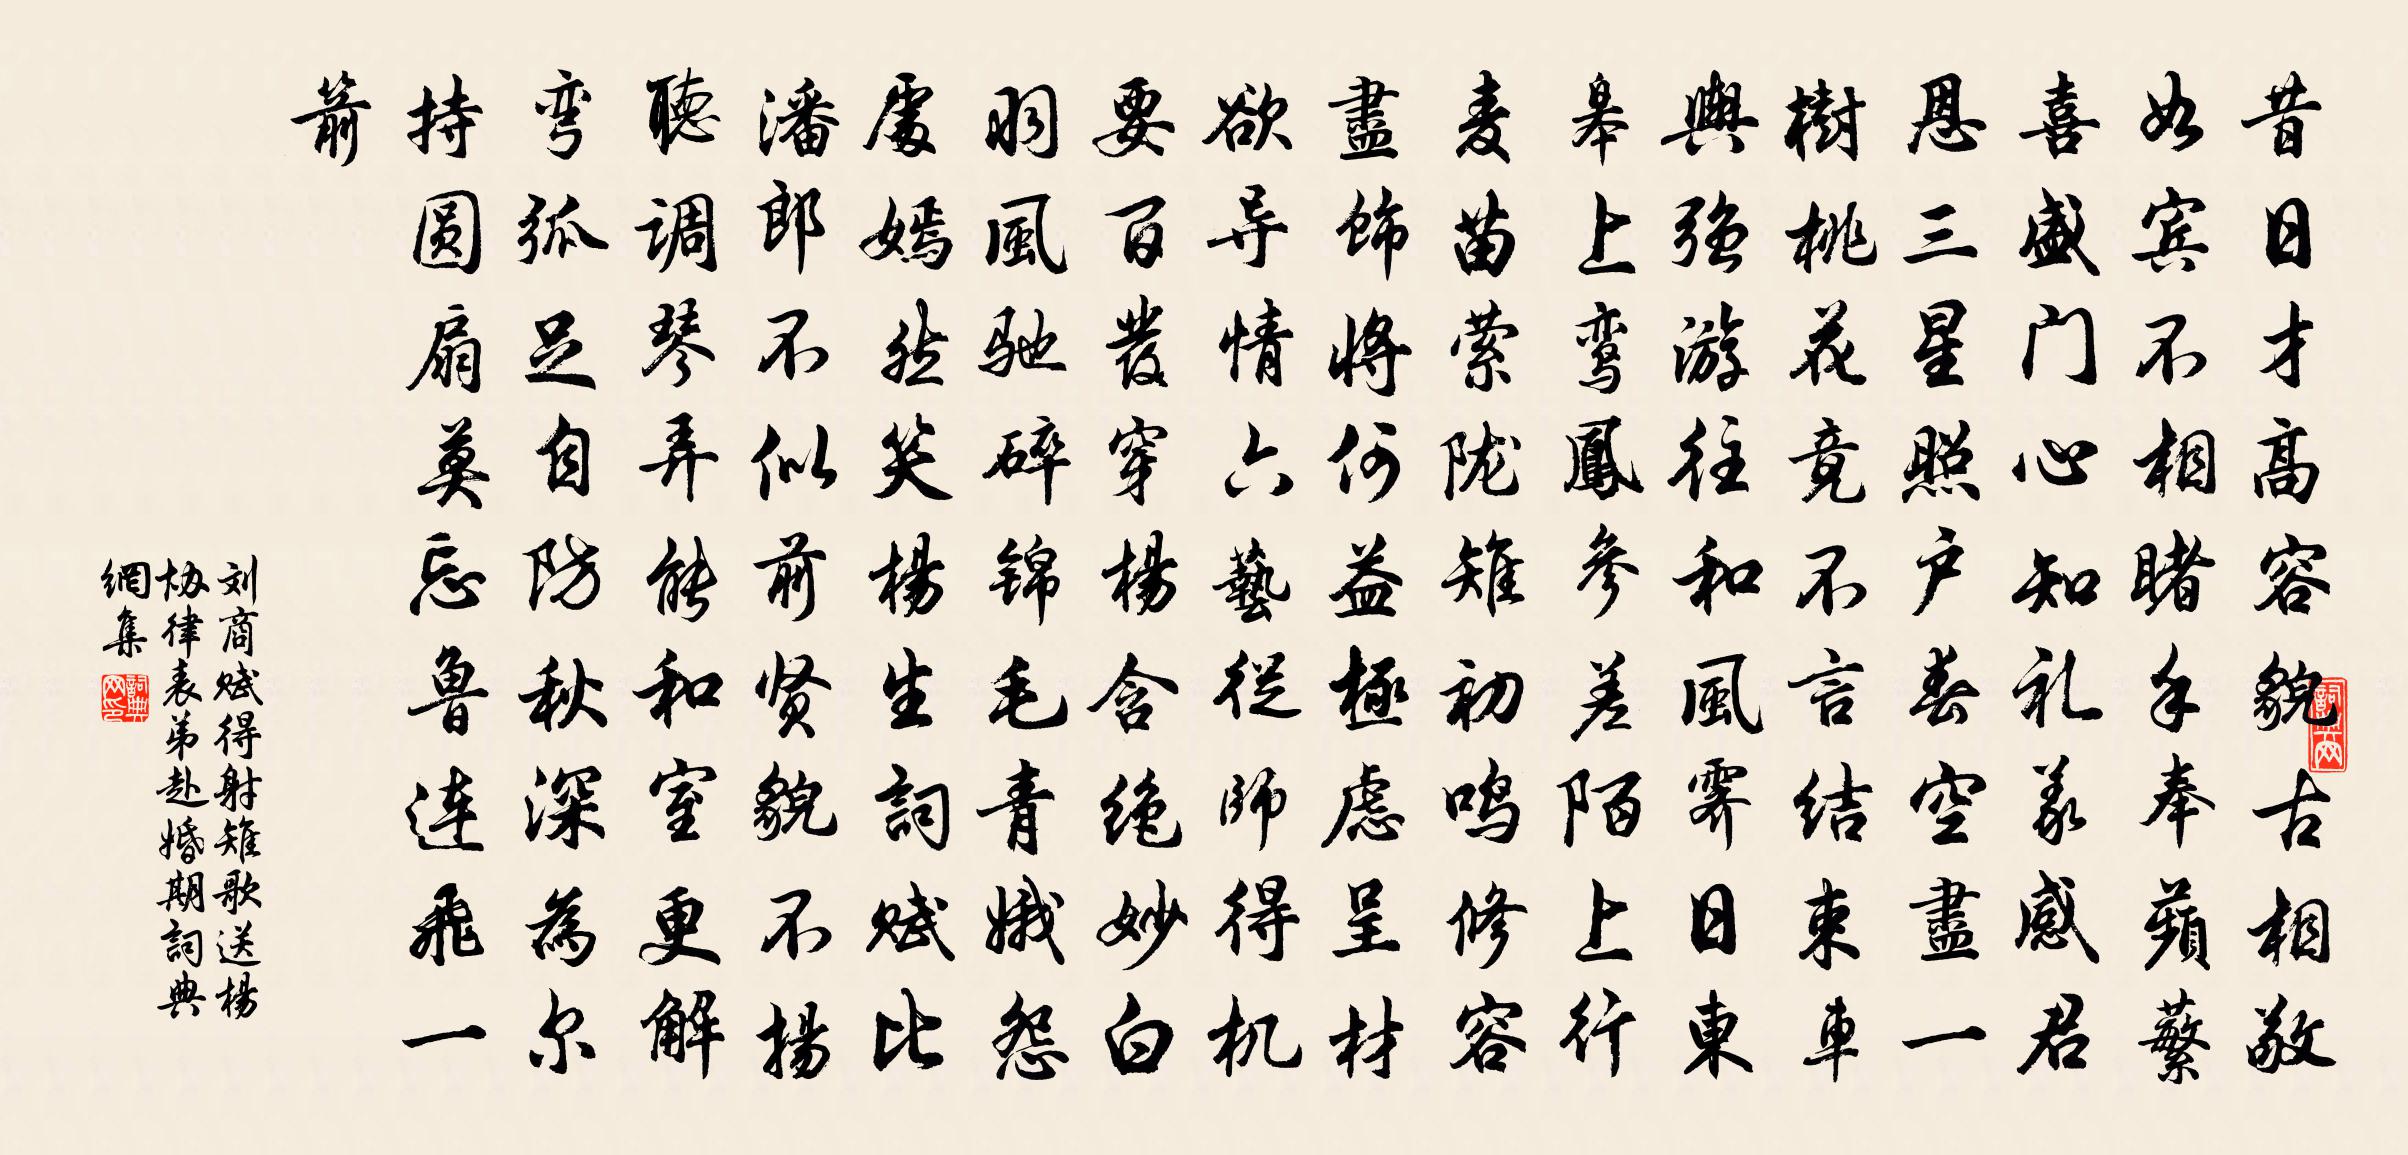 昔日才高容貌古相敬
如宾不相睹手奉蘋蘩
喜盛门心知礼义感君
恩三星照户春空盡一
樹桃花竟不言结束車
輿强游往和風霁日東
皋上鸾鳳参差陌上行
麦苗萦陇雉初鸣修容
盡飾將何益極慮呈材
欲导情六藝從師得机
要百發穿楊含绝妙白
羽風驰碎锦毛青娥怨
處嫣然笑楊生詞赋比
潘郎不似前贤貌不揚
聴调琴弄能和室更解
弯弧足自防秋深為尔
持圆扇莫忘鲁连飛一
箭
刘商赋得射雉歌送楊
协律表弟赴婚期詞典
網集